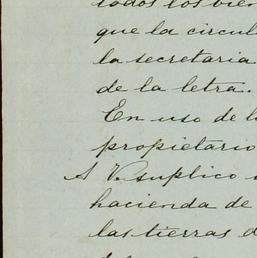 todos los bien
que la circul
la secretaria
de la letra.
En uso de l
propietario
A V. suplico
hacienda de
las tierras d